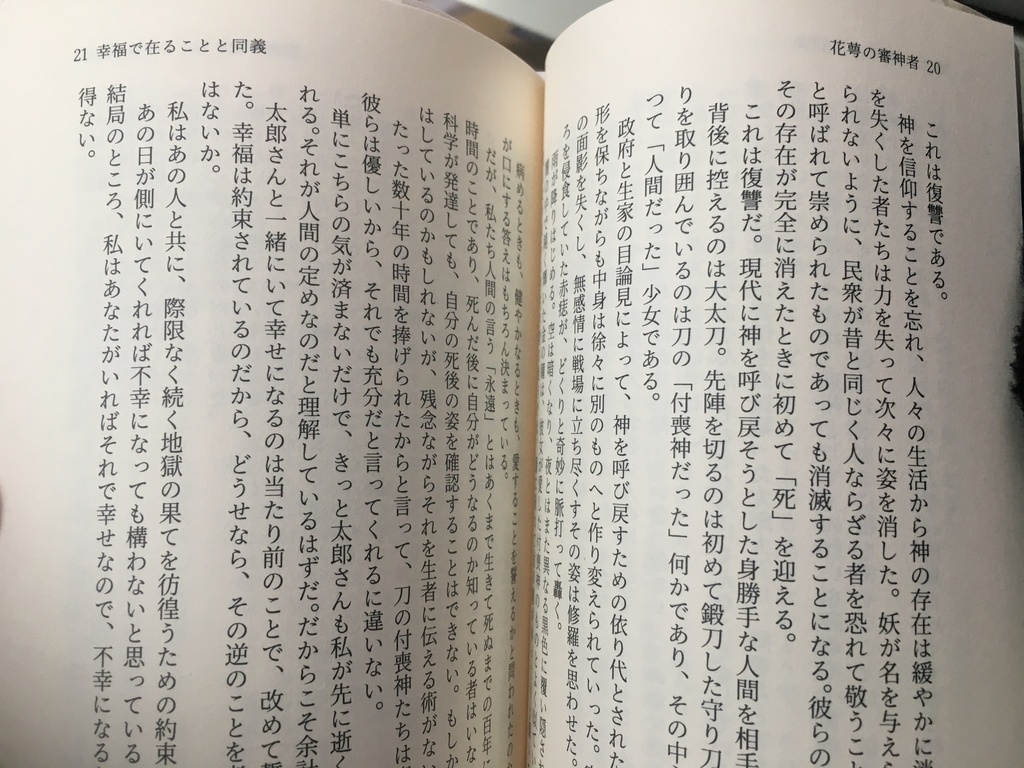 花萼の審神者 20
これは復讐である。
神を信仰することを忘れ、人々の生活から神の存在は緩やかに消
を失くした者たちは力を失って次々に姿を消した。妖が名を与え
られないように、民衆が昔と同じく人ならざる者を恐れて敬うこ
と呼ばれて崇められたものであっても消滅することになる。彼らの
その存在が完全に消えたときに初めて「死」を迎える。
これは復讐だ。現代に神を呼び戻そうとした身勝手な人間を相手
背後に控えるのは大太刀。先陣を切るのは初めて鍛刀した守り刀
りを取り囲んでいるのは刀の「付喪神だった」何かであり、その中
って「人間だった」少女である。
政府と生家の目論見によって、神を呼び戻すための依り代とされた
形を保ちながらも中身は徐々に別のものへと作り変えられていった。
の面影を失くし、無感情に戦場に立ち尽くすその姿は修羅を思わせた。
ろを侵食していた赤痣が、どくりと奇妙に脈打って轟く。
雨が降りはじめる。空は暗くなり、夜とはまた異なる黒色に覆い隠され
21 幸福で在ることと同義
病めるときも、健やかなるときも、愛することを誓えるかと問われたの
が口にする答えはもちろん決まっている。
だが、私たち人間の言う「永遠」とはあくまで生きて死ぬまでの百年に
時間のことであり、死んだ後に自分がどうなるのか知っている者はいな
科学が発達しても、自分の死後の姿を確認することはできない。もしか
はしているのかもしれないが、残念ながらそれを生者に伝える術がない
たった数十年の時間を捧げられたからと言って、刀の付喪神たちは
彼らは優しいから、それでも充分だと言ってくれるに違いない。
単にこちらの気が済まないだけで、きっと太郎さんも私が先に逝く
れる。それが人間の定めなのだと理解しているはずだ。だからこそ余計
太郎さんと一緒にいて幸せになるのは当たり前のことで、改めて誓
た。幸福は約束されているのだから、どうせなら、その逆のことを
はないか。
私はあの人と共に、際限なく続く地獄の果てを彷徨うための約束
あの日が側にいてくれれば不幸になっても構わないと思っている
結局のところ、私はあなたがいればそれで幸せなので、不幸になる
得ない。